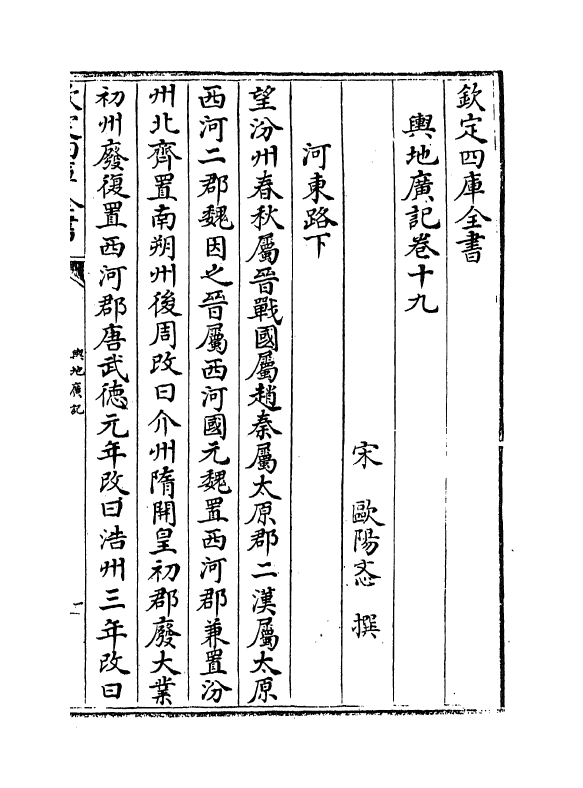 欽定四庫全書
輿地廣記卷十九
宋 歐陽忞 撰
河東路下
望汾州春秋屬晉戰國屬趙秦屬太原郡二漢屬太原
西河二郡魏因之晉屬西河國元魏置西河郡兼置汾
州北齊置南朔州後周改曰介州隋開皇初郡廢大業
初州廢復置西河郡唐武德元年改曰浩州三年改曰
欽定四庫全書
輿地廣記
一